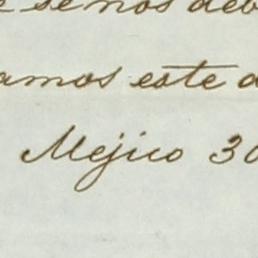 e se nos deb
amos este d
Mejico 30